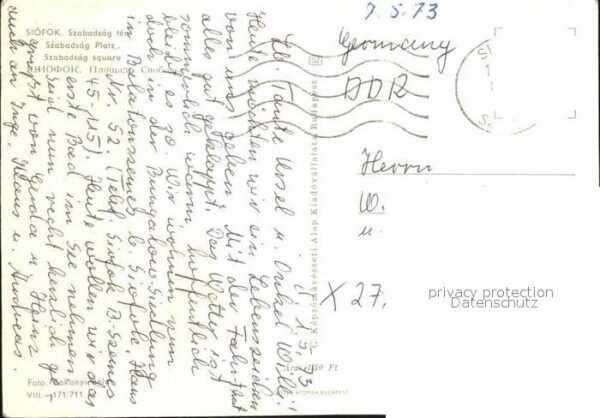 SIÓFOK. Szabadság tér
Szabadság Platz
Szabadság square
ШИОФОК. Площадь
7.5.73
Germany
DDR
Herrn
W.
u.
X 27,
privacy protection
Datenschutz
1.5.73
Lb. Tante Ursel u. Onkel Willi!
Heute möchten wir ein Lebenszeichen
von uns geben. Mit der Fahrt hat
alles gut geklappt. Das Wetter ist
sommerlich warm, hoffentlich
bleibt es so. Wir wohnen nun
doch in der Bungalow-Siedlung
in Balatonszemes b. Siófok, Haus
Nr. 52. (Telef. Siófok B-Szemes
45-115). Heute wollen wir das
erste Bad im See nehmen.
Seid nun recht herzlich ge-
grüßt von Gerda u. Heinz
auch an Inge, Klaus u. Andreas.
C. Képzőművészeti Alap Kiadóvállalata, Budapest
Ára: 1,50 Ft
Foto:
VIII. 171,711
BUDAPEST